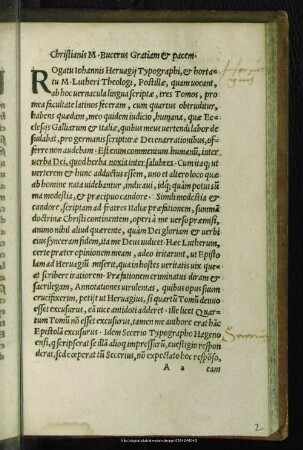 Christianis M. Bucerus Gratiam & pacem.
ROgatu Iohannis Heruagij Typographi, & horta-
tu M. Lutheri Theologi, Postillæ, quam uocant,
ab hoc uernacula lingua scriptæ, tres Tomos, pro
mea facultate latinos feceram, cum quartus obtruditur,
habens quædam, meo quidem iudicio, humana, quæ Ec-
clesijs Galliarum & Italiæ, quibus meus uertendi labor de
sudabat, pro germanis scripturæ Dei enarrationibus, of-
ferre non audebam. Est enim commentum humanū, inter
uerba Dei, quod herba noxia inter salubres. Cum itaq; ut
uerterem & hunc adductus essem, uno et altero loco quæ
ab homine nata uidebantur, indicaui, idq; quàm potui sū
ma modestia, & præcipuo candore. Simili modestia &
candore, scriptam ad fratres Italiæ præfationem, summā
doctrinæ Christi continentem, operi à me uerso præmisi,
animo nihil aliud quærente, quàm Dei gloriam & uerbi
eius synceram fidem, ita me Deus iudicet. Hæc Lutherum,
certe præter opinionem meam, adeo irritarunt, ut Episto
lam ad Heruagiū miserit, qua in hostes ueritatis uix que
at scribere iratiorem. Præfationem criminatus diram &
sacrilegam, Annotationes uirulentas, quibus opus suum
crucifixerim, petijt ut Heruagius, si quartū Tomū denuo
esset excusurus, eā uice antidoti adderet. Ille licet Quar-
tum Tomū nō esset excusurus, tamen me authore erat hāc
Epistolā excusurus. Idem Secerio Typographo Hageno
ensi, q scripserat se illā alioq impressurū, è uestigio respon
derat, sed cæperat tū Secerius, nō expectato hec respōso,
A a
eam
2